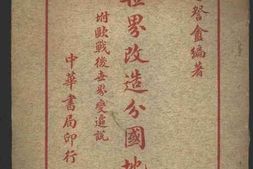 盦編著
世界改造分國地
附歐戰後世界變遷說
中華書局印行